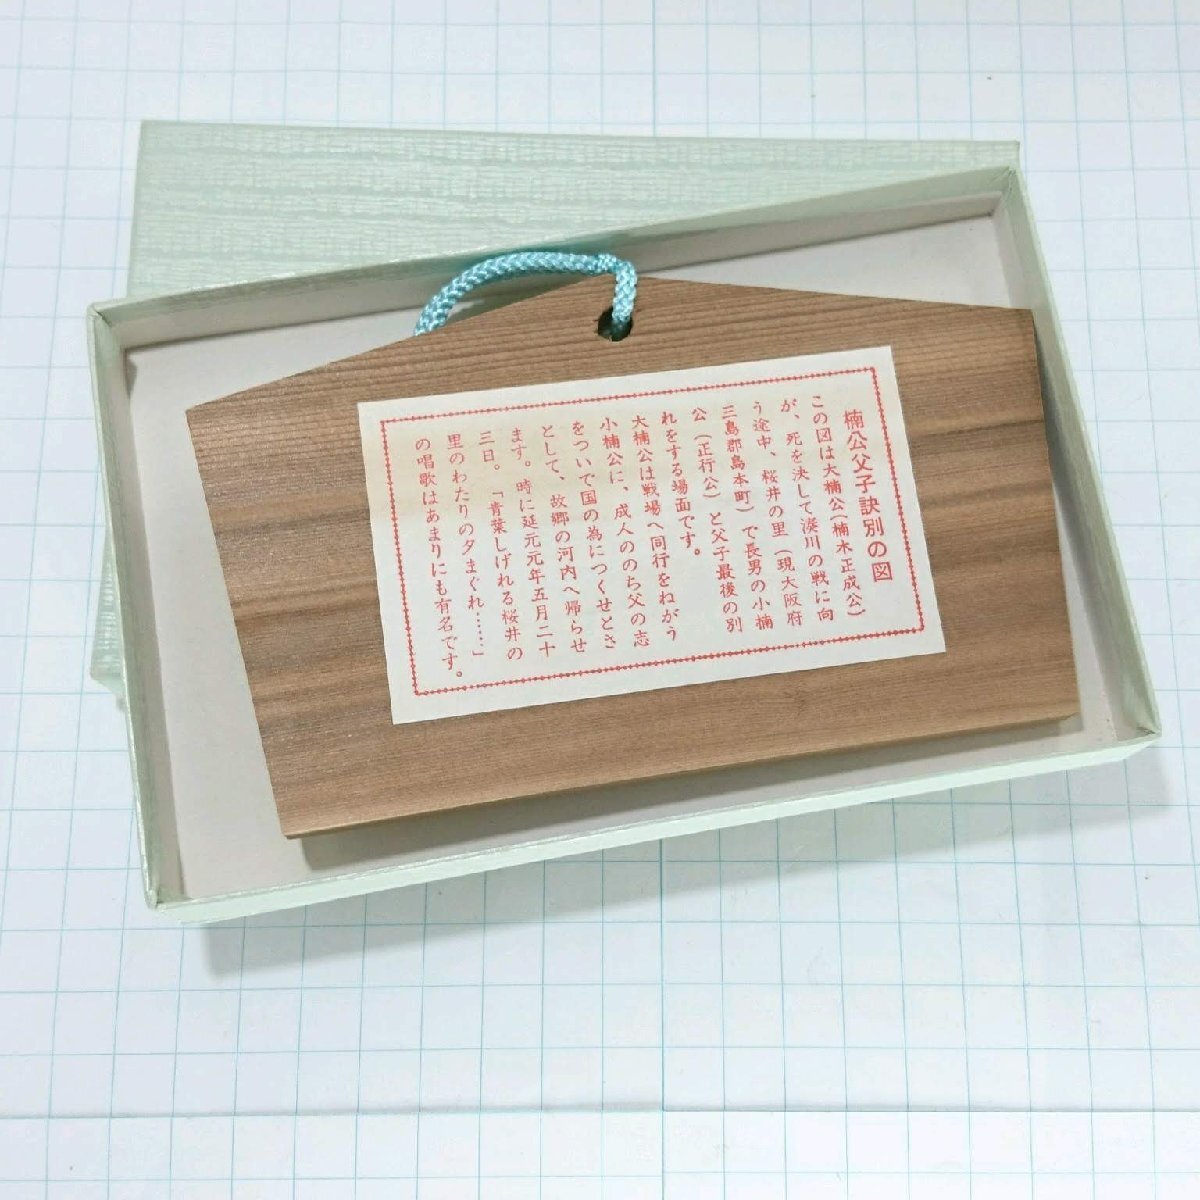 楠公父子訣別の図
この図は大楠公(楠木正成公)
が、死を決して湊川の戦に向
う途中、桜井の里(現大阪府
三島郡島本町)で長男の小楠
公(正行公)と父子最後の別
れをする場面です。
大楠公は戦場へ同行をねがう
小楠公に、成人ののち父の志
をついで国の為につくせとさ
として、故郷の河内へ帰らせ
ます。時に延元元年五月二十
三日。「青葉しげれる桜井の
里のわたりの夕まぐれ……」
の唱歌はあまりにも有名です。